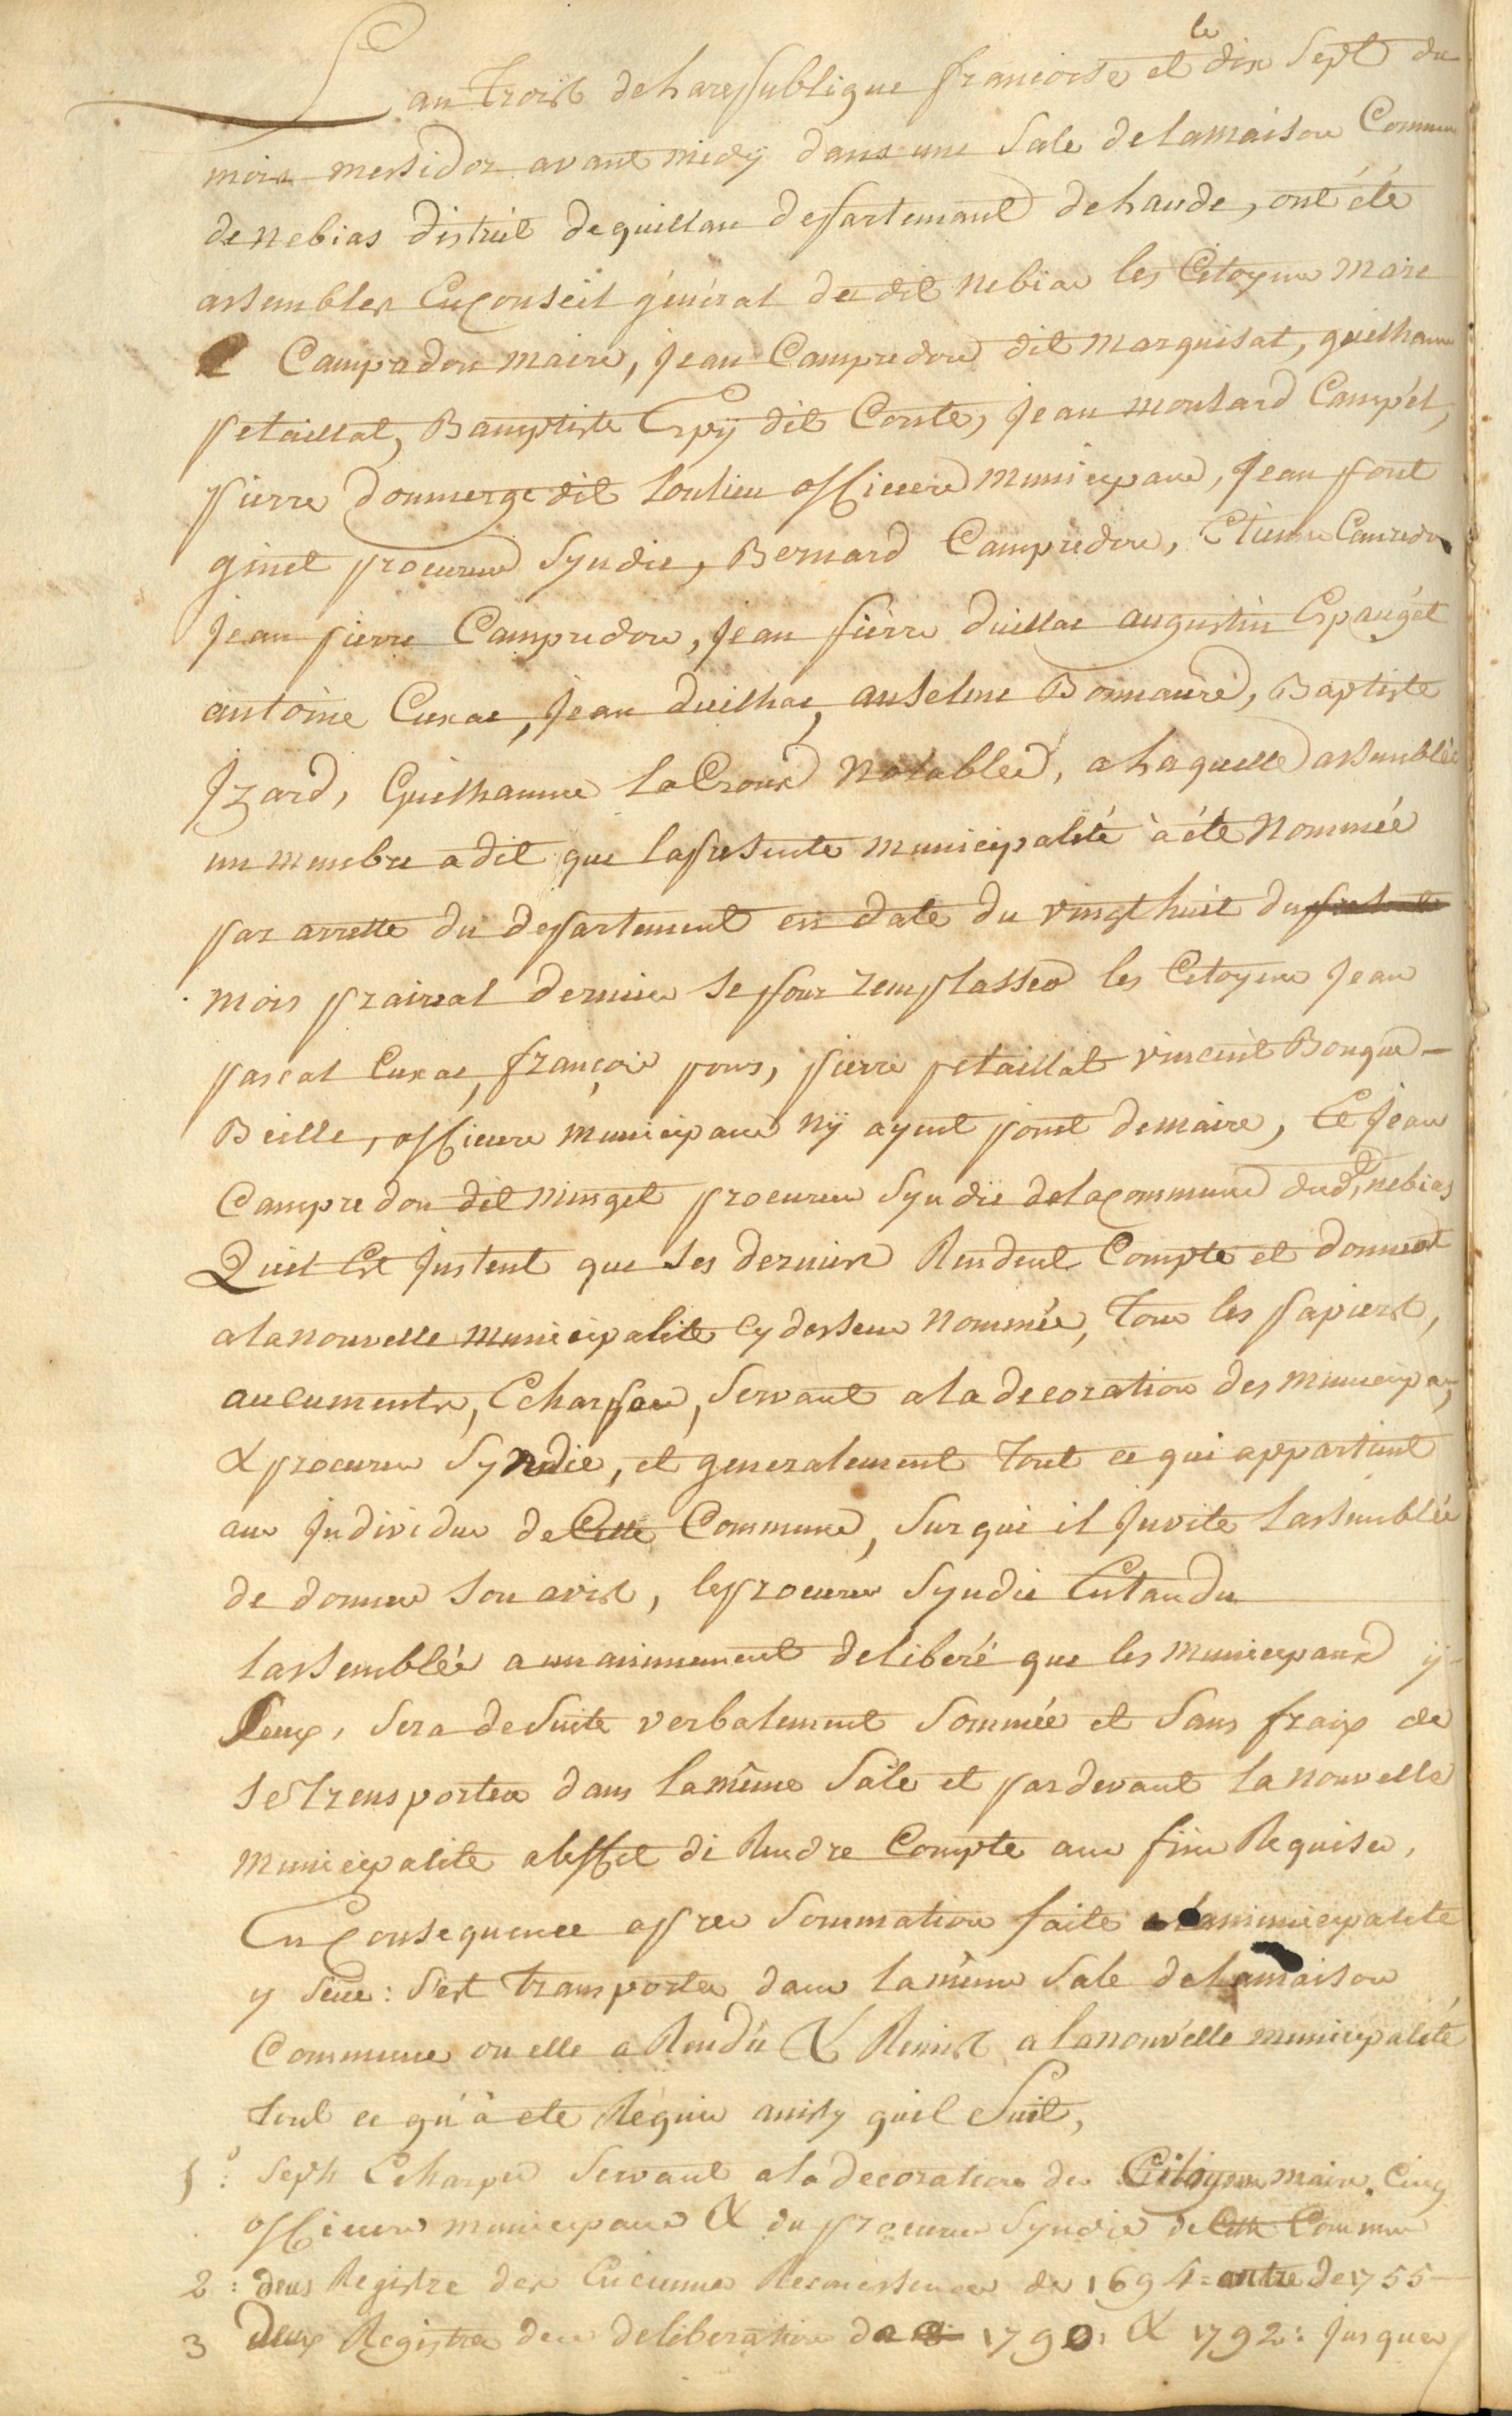 Lan Troist deharepublique francoise et le dix Sept du
mois messidor avant midÿ dans une Sale delamaison Commune
de nebias distrit de quillan departemant de haude, ont été
assembler En Conseil général du dit nebias les Citoyens maire
Campadou maire, jean Campredon dit marquisat, guilhaume
petaillat, Bamptiste Espÿ dit Conte, jean monsard Campél,
pierre doumerge dit Loulieu officiers municipaux, jean pont
ginet procureur Syndic, Bernard Campredon, Etienne Camredon
jean pierre Campredon, jean pierre duillac augustin Espaugét
antoine Cuxac, jean duilhac, anselme Bonnauré, Baptiste
jzard, Guilhaume LaCroux Notables, a haquelle assemblée
un membre a dit que lapresente municipalité à été Nommée
par arrette du departement en date du vingt huit du
mois prairial dernier se pour remplasser les Citoyens jean
pascal Cuxac, françois pons, pierre petaillat vincent Bouque-
Beille, officiers municipaux nÿ ayent point demaire, Ce jean
Campredon dit minget procureur Syndic delacommune dud. nebias
Quil Est justent que ses dernier Rendent Compte et donnent
alanouvelle municipalite cy dessus nommée, tous les papiers,
aucuments, Echarpes, Servant a la decoration des municipaux
& procureur Syndic, et generalement tout ce qui appartient
aux jndividus de Cette Commune, Sur qui il jnvite Lassemblée
de donner Son avist, le procureur Syndic Entandu
Lassemblée a unanimement deliberé que les municipaux ÿ
Seux, Sera deSuite verbalement Sommée et Sans fraix de
Se Transporter dans lamême Sale et pardevant La nouvelle
municipalite a leffet di Rendre Compte aux fins Requises,
En Consequence apres Sommation faite alamunicipalite
y Seux : S'est transporter dans la même Sale delamaison
Commune ou elle a Rendû & Remist a lanouvelle municipalité
tout ce qu'à ete Réquis ainsy quil Suit,
1°: Seph Echarpes Servant a la decoration du Citoyen maire, Cinq
officiers municipaux & du procureur Syndic de Cette Commune
2: deux Registre des Enciennes Reconessences de 1694 = autre de 1755
3 deux Registres des deliberations de 1790, & 1792: jusques